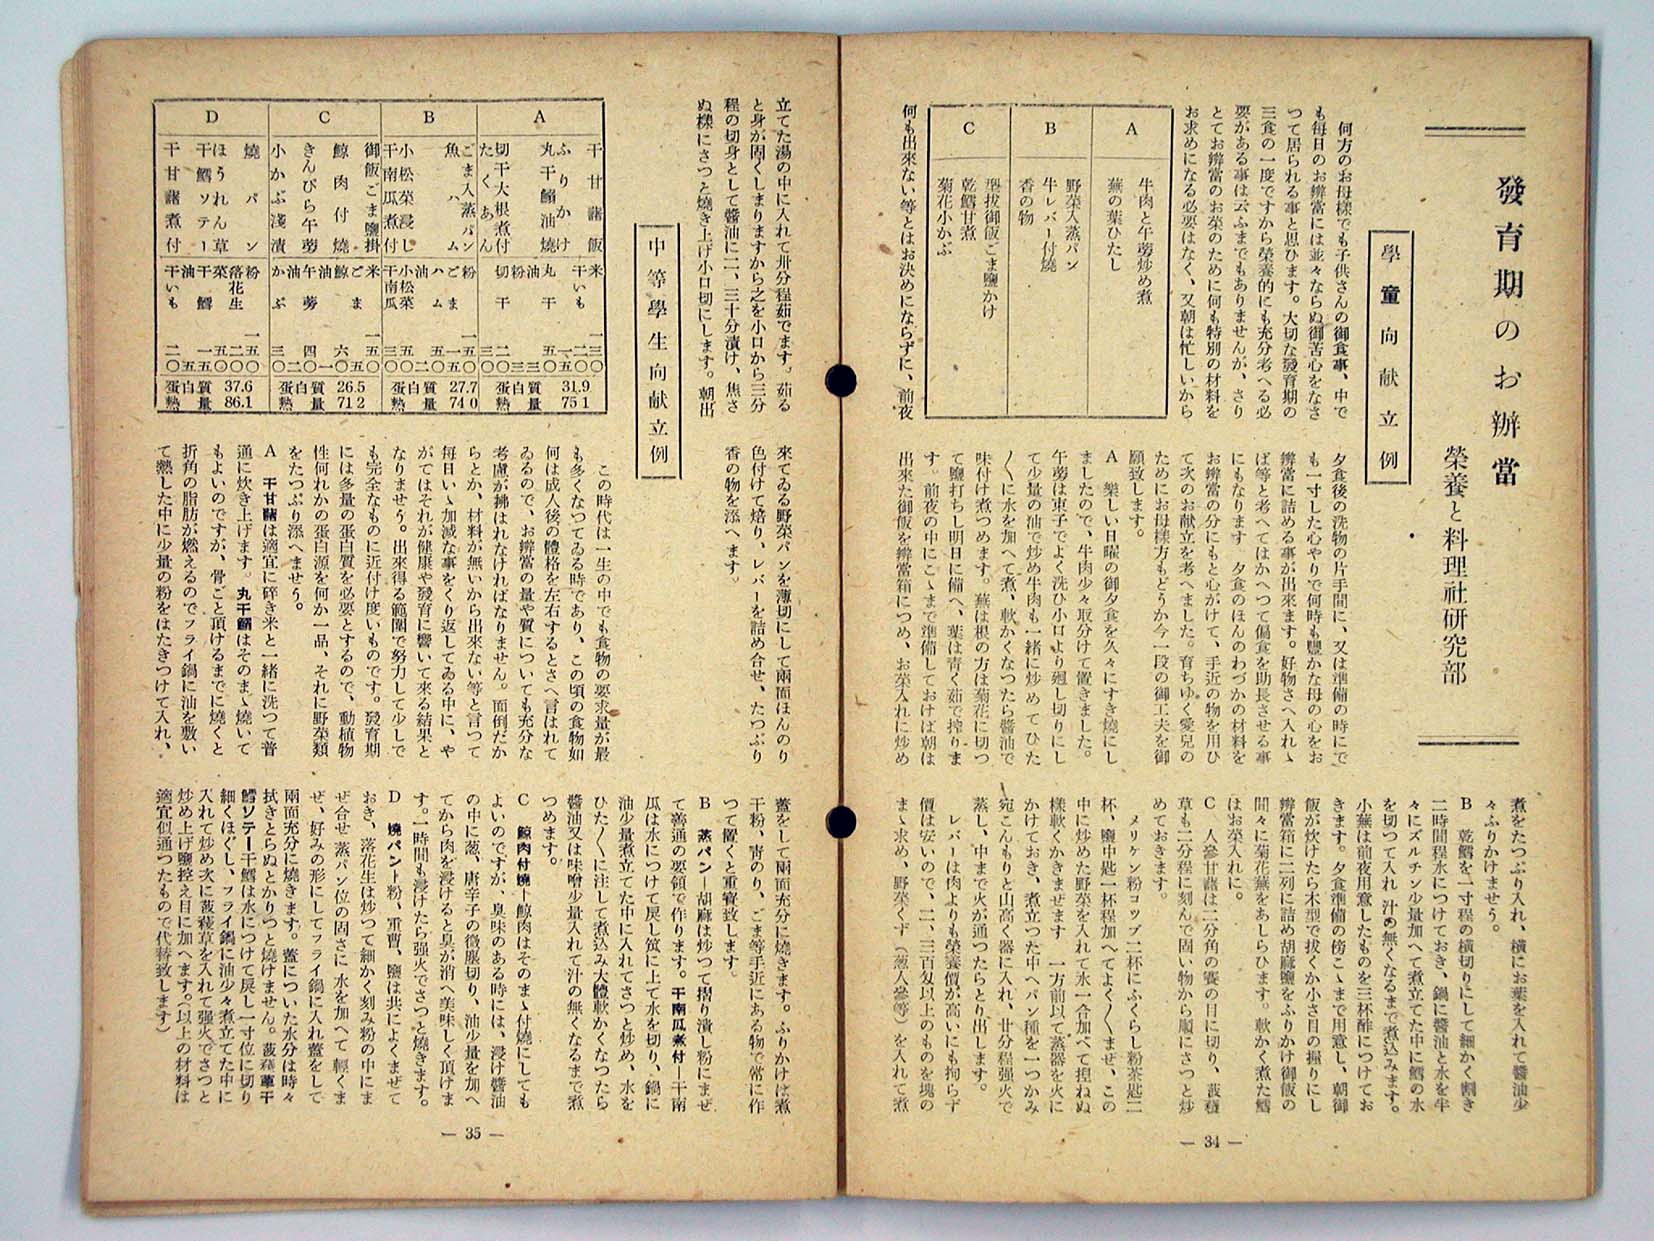 發育期のお辦當
榮養と料理社硏究部
學童向献立例
何方のお母樣でも子供さんの御食事、中で
も每日のお辨當には並々ならぬ御苦心をなさ
つて居られる事と思ひます。大切な發育期の
三食の一度ですから榮養的にも充分考へる必
要がある事は云ふまでもありませんが、さり
とてお辨當のお菜のために何も特別の材料を
お求めになる必要はなく、又朝は忙しいから
A
牛肉と午蒡炒め煮
蕪の葉ひたし
B
野菜入蒸パン
牛レバー付燒
香の物
C
型拔御飯ごま鹽かけ
乾鱈甘煮
菊花小かぶ
何も出來ない等とはお決めにならずに、前夜
夕食後の洗物の片手間に、又は準備の時にで
も一寸した心やりで何時も豐かな母の心をお
辨當に詰める事が出來ます。好物さへ入れゝ
ば等と考へてはかへつて偏食を助長させる事
にもなります　夕食のほんのわづかの材料を
お辨當の分にもと心がけて、手近の物を用ひ
て次のお献立を考へました。育ちゆく愛兒の
ためにお母樣方もどうか今一段の御工夫を御
願致します。
A　樂しい日曜の御夕食を久々にすき燒にし
ましたので、牛肉少々取分けて置きました。
午蒡は束子でよく洗ひ小口より廻し切りにし
て少量の油で炒め牛肉も一緖に炒めてひた
〱に水を加へて煮、軟かくなつたら醬油で
味付け煮つめます。蕪は根の方は菊花に切つ
て鹽打ちし明日に備へ、葉は靑く茹で搾りま
す。前夜の中にこゝまで準備しておけば朝は
出來た御飯を辨當箱につめ、お菜入れに炒め
煮をたつぷり入れ、橫にお葉を入れて醬油少
々ふりかけませう。
B　乾鱈を一寸程の橫切りにして細かく割き
二時間程水につけておき、鍋に醬油と水を半
々にズルチン少量加へて煮立てた中に鱈の水
を切つて入れ　汁の無くなるまで煮込みます。
小蕪は前夜用意したものを三杯酢につけてお
きます。夕食準備の傍こゝまで用意し、朝御
飯が炊けたら木型で拔くか小さ目の握りにし
辨當箱に二列に詰め胡麻鹽をふりかけ御飯の
間々に菊花蕪をあしらひます。軟かく煮た鱈
はお菜入れに。
C　人參甘藷は二分角の賽の目に切り、菠薐
草も二分程に刻んで固い物から順にさつと炒
めておきます。
メリケン粉コツプ二杯にふくらし粉茶匙二
杯、鹽中匙一杯程加へてよく〱まぜ、この
中に炒めた野菜を入れて水一合加へて捏ねぬ
樣軟くかきまぜます　一方前以て蒸器を火に
かけておき、煮立つた中へパン種を一つかみ
宛こんもりと山高く器に入れ、廿分程强火で
蒸し、中まで火が通つたらとり出します。
レバーは肉よりも榮養價が高いにも拘らず
價は安いので、二、三百匁以上のものを塊の
まゝ求め、野菜くず（葱人參等）を入れて煮
— 34 —
立てた湯の中に入れて卅分程茹でます。茹る
と身が固くしまりますから之を小口から三分
程の切身として醬油に二、三十分漬け、焦さ
ぬ樣にさつと燒き上げ小口切にします。朝出
來てゐる野菜パンを薄切にして兩面ほんのり
色付けて焙り、レバーを詰め合せ、たつぷり
香の物を添へます。
中等學生向献立例
A
干甘藷飯
ふりかけ
丸干鰯油燒
切干大根煮付
たくあん
米
干いも
丸干
油
粉
切干
蛋白質 31.9
熱量 751
B
ごま入蒸パン
魚ハム
小松菜浸し
干南瓜煮付
粉
ごま
ハム
油
小松菜
干南瓜
蛋白質 27.7
熱量 740
C
御飯ごま鹽掛
鯨肉付燒
きんぴら午蒡
小かぶ淺漬
米
ごま
鯨
油
午蒡
油
かぶ
蛋白質 26.5
熱量 712
D
燒パン
ほうれん草
干鱈ソテー
干甘藷煮付
粉
落花生
菜
干鱈
油
干いも
蛋白質 37.6
熱量 86.1
この時代は一生の中でも食物の要求量が最
も多くなつてゐる時であり、この頃の食物如
何は成人後の體格を左右するとさへ言はれて
ゐるので、お辨當の量や質についても充分な
考慮が拂はれなければなりません。面倒だか
らとか、材料が無いから出來ない等と言つて
每日いゝ加減な事をくり返してゐる中に、や
がてはそれが健康や發育に響いて來る結果と
なりませう。出來得る範圍で努力して少しで
も完全なものに近付け度いものです。發育期
には多量の蛋白質を必要とするので、動植物
性何れかの蛋白源を何か一品、それに野菜類
をたつぷり添へませう。
A　干甘藷は適宜に碎き米と一緖に洗つて普
通に炊き上げます。丸干鰯はそのまゝ燒いて
もよいのですが、骨ごと頂けるまでに燒くと
折角の脂肪が燃えるのでフライ鍋に油を敷い
て熱した中に少量の粉をはたきつけて入れ、
蓋をして兩面充分に燒きます。ふりかけは煮
干粉、靑のり、ごま等手近にある物で常に作
つて置くと重寳致します。
B　蒸パン—胡麻は炒つて摺り潰し粉にまぜ
て善通の要領で作ります。干南瓜煮付—干南
瓜は水につけて戾し笊に上て水を切り、鍋に
油少量煮立てた中に入れてさつと炒め、水を
ひた〱に注して煮込み大體軟かくなつたら
醬油又は味噌少量入れて汁の無くなるまで煮
つめます。
C　鯨肉付燒—鯨肉はそのまゝ付燒にしても
よいのですが、臭味のある時には、浸け醬油
の中に葱、唐辛子の微塵切り、油少量を加へ
てから肉を浸けると臭が消へ美味しく頂けま
す。一時間も浸けたら强火でさつと燒きます。
D　燒パン—粉、重曹、鹽は共によくまぜて
おき、落花生は炒つて細かく刻み粉の中にま
ぜ合せ　蒸パン位の固さに　水を加へて輕くま
ぜ、好みの形にしてフライ鍋に入れ蓋をして
兩面充分に燒きます。蓋についた水分は時々
拭きとらぬとかりつと燒けません。菠薐草干
鱈ソテー干鱈は水につけて戾し一寸位に切り
細くほぐし、フライ鍋に油少々煮立てた中に
入れて炒め次に菠薐草を入れて强火でさつと
炒め上げ鹽控え目に加へます。（以上の材料は
適宜似通つたもので代替致します）
— 35 —